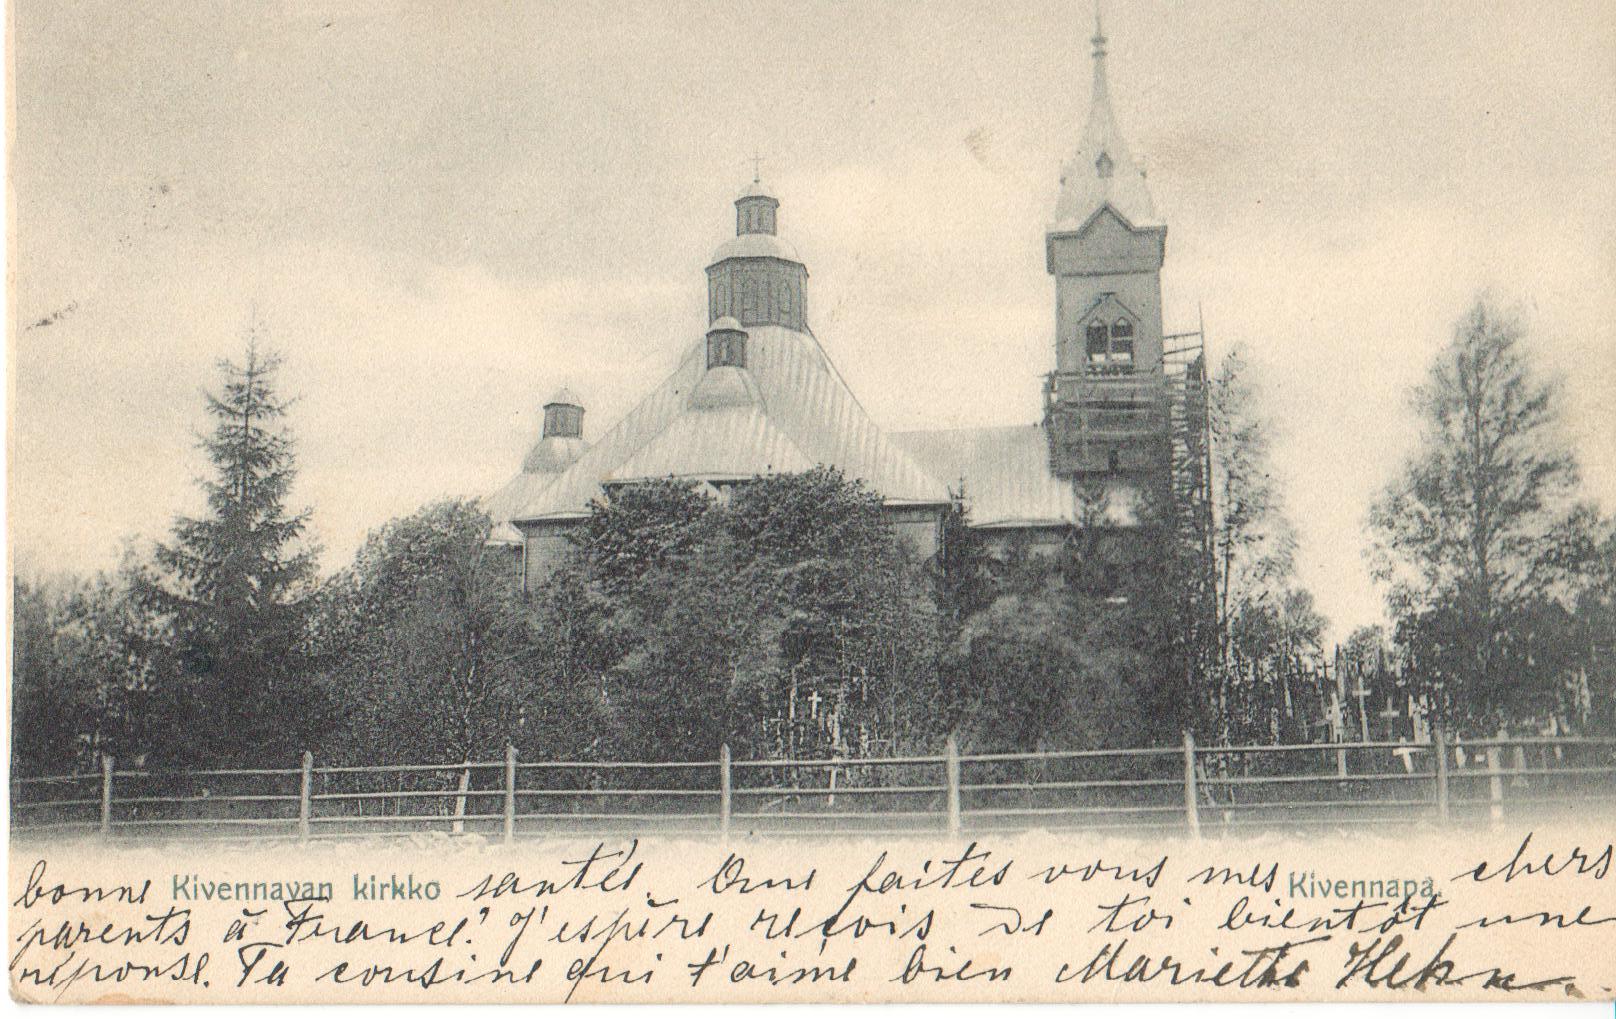 bonne Kivennavan kirkko santée. Que faites vous mes Kivennapa. chers
parents à France? J'espère reçois de toi bientôt une
réponse. Ta cousine qui t'aime bien Mariette